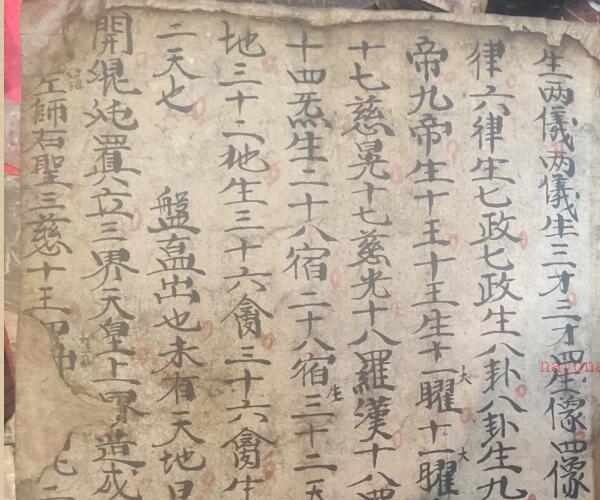 生两儀两儀生三才三才生四像四像
律六律生七政七政生八卦八卦生九
帝九帝生十王十王生十一大曜十一大曜
十七慈晃十七慈光十八羅漢十八
十四炁生二十八宿二十八宿生三十二天
地三十二地生三十六禽三十六禽生
二天七
盤古出也未有天地日
開混沌置立三界天皇上界造成
左師右聖三慈十王